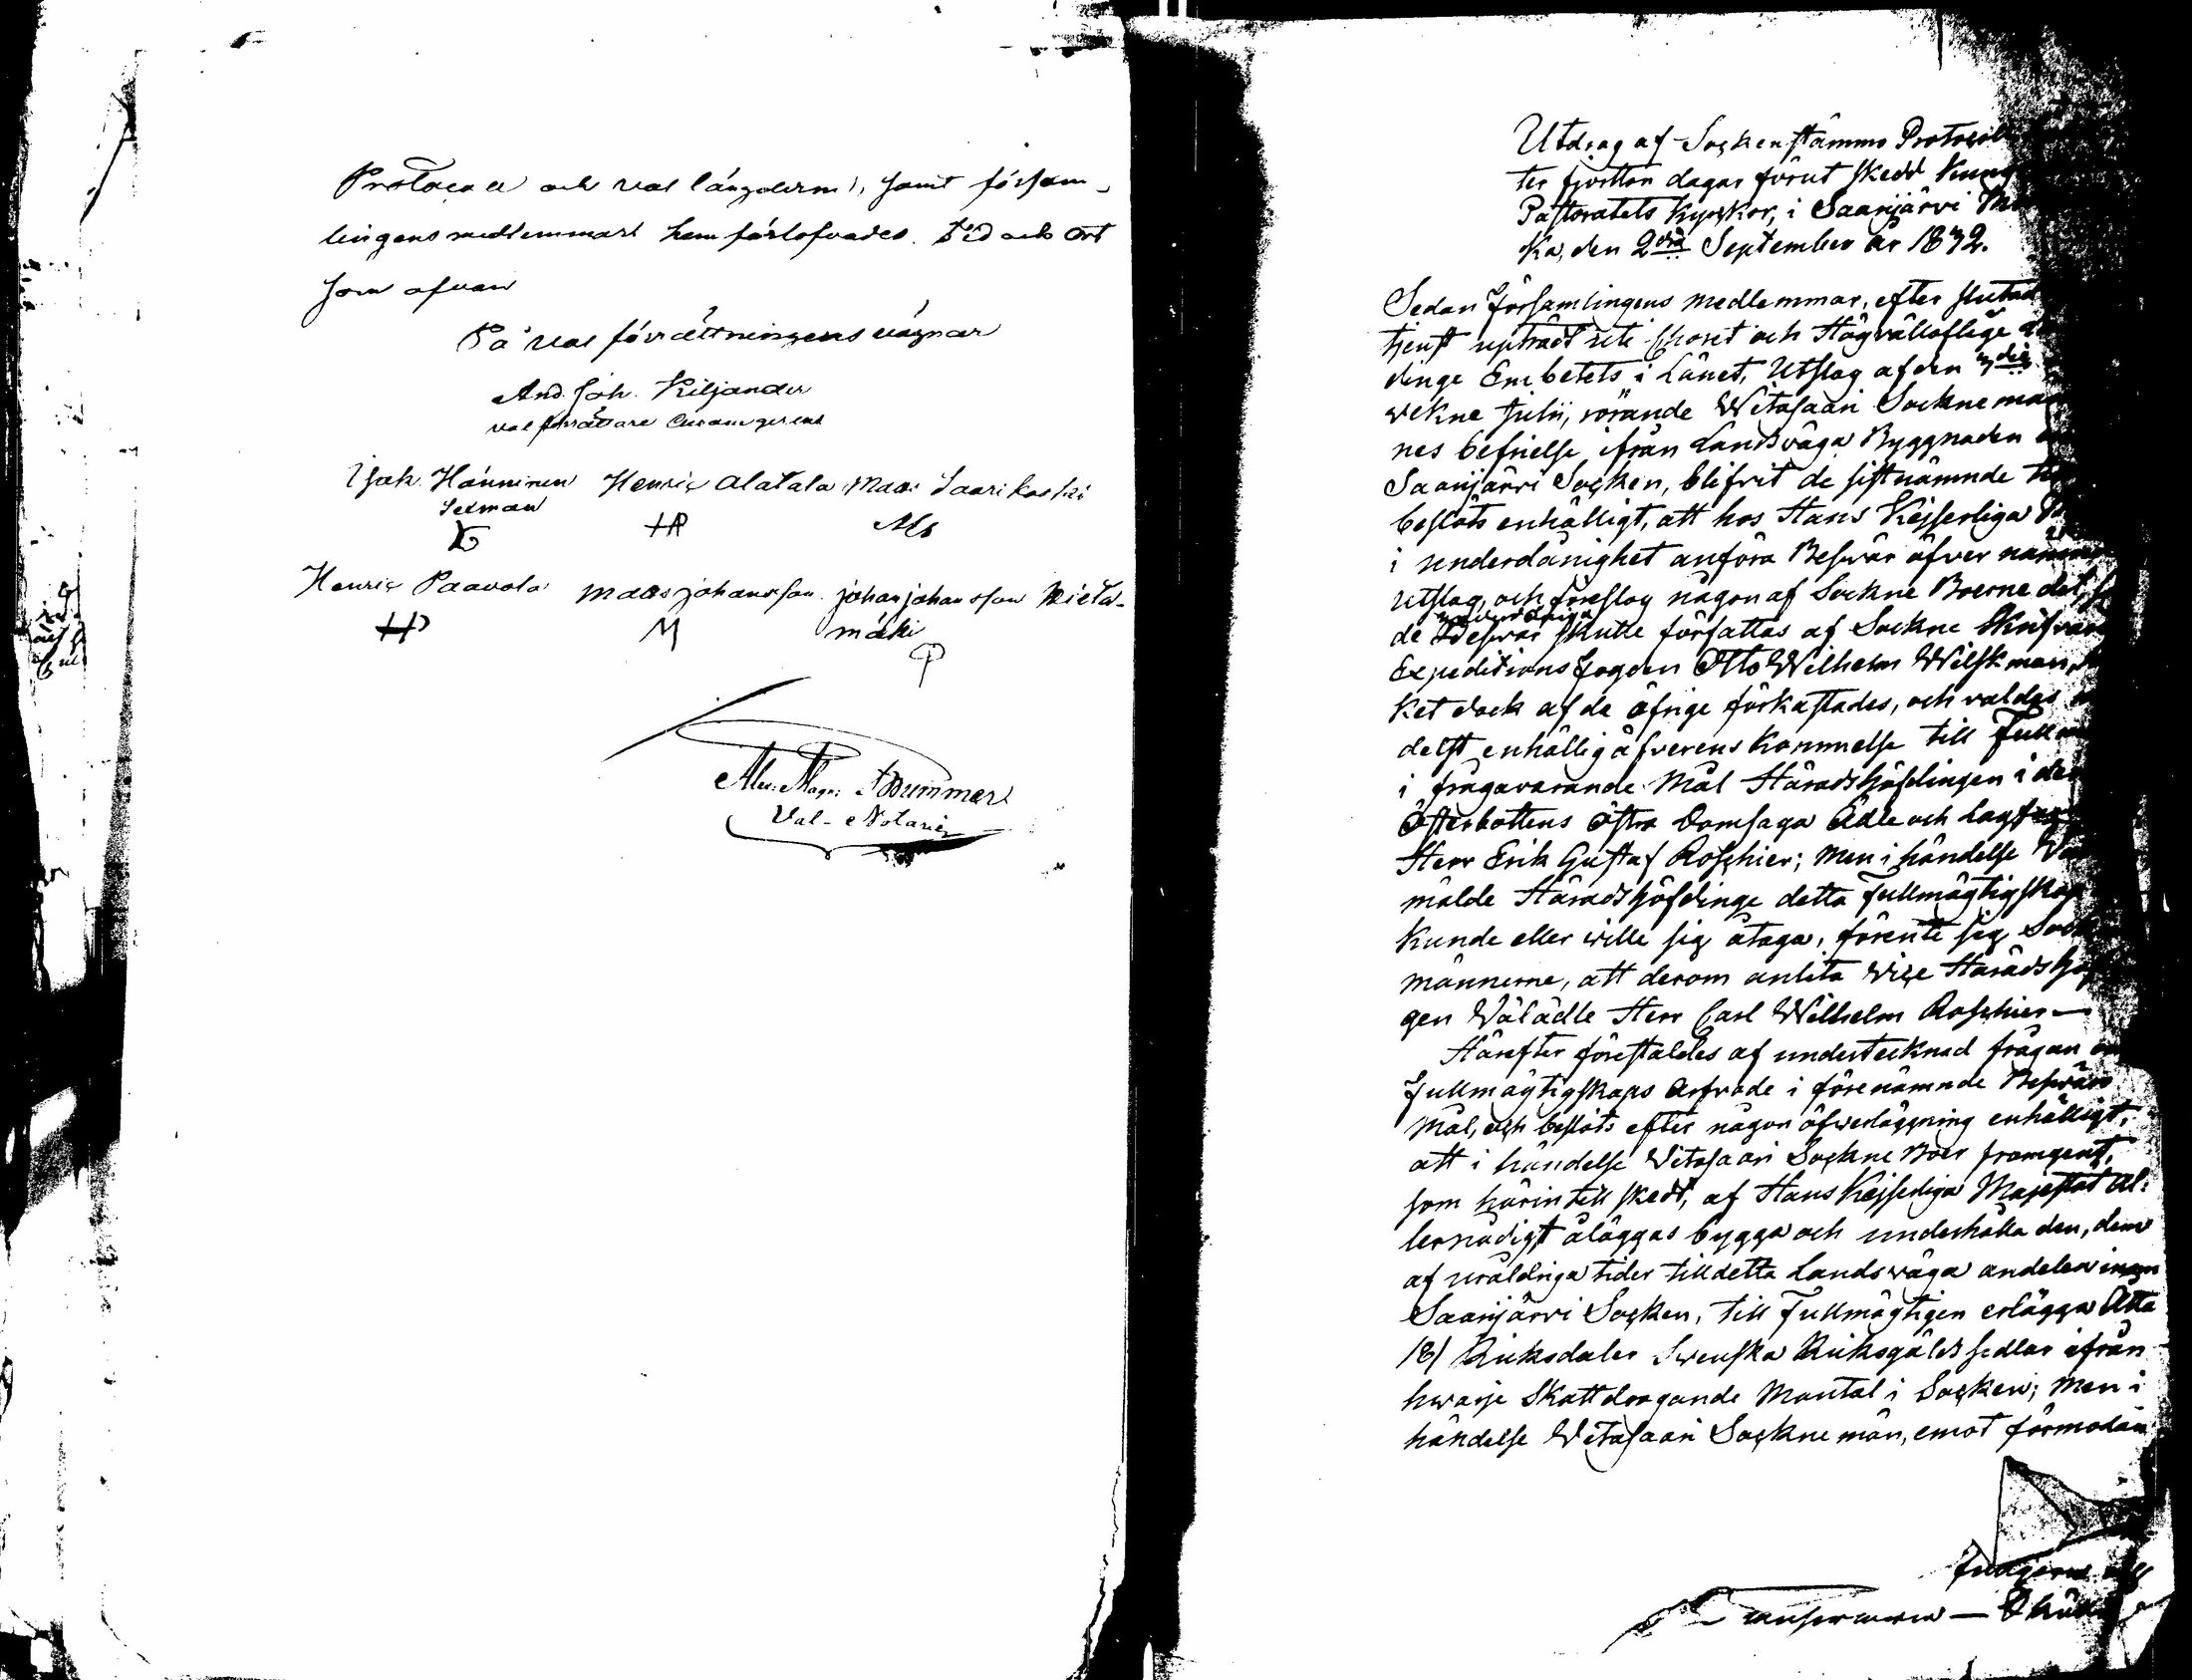 Protocoll och val längderne, samt försam-
lingens medlemmar hem förlofvades. Tid och ort
som ofvan
På val förrättningens vägnar
And. Joh. Kiljander
val förrättare
Isak Hänninen Henric Alatalo Mats Saarikoski
HP Ms
Henric Paavola Mats Johansson Johan Johansson Mieta-
mäki
H M P
Val-Notarie
Utdrag af Sockenstämmo Protocoll
ter fjorton dagar förut skedd Kung
Pastoratets Kyrckor, i Saarijärvi
ka, den 2dra September år 1832.
Sedan Församlingens medlemmar, efter slutad
tjenst uptrædt uti Choret och Högvälloflige
dinge Embetets i Länet, Utslag af den
vekne Julii, rörande Witasaari Sockne
nes befrielse ifrån Landsväga Byggnaden
Saarijärvi Socken, blifvit de sistnämnde
beslöts enhälligt, att hos Hans Kejserliga
i underdånighet anföra Besvär öfver
Utslag, och föreslog någon af Sockne Boerne det,
underdåniga
de Besvär skulle författas af Sockne Skrifvaren
Expeditions Fogden Otto Wilhelm Wilskman,
ket dock af de öfrige förkastades, och valdes
delst enhällig öfverenskommelse till
i frågavarande Mål Häradshöfdingen i
Österbottens östra Domsaga Ädle och
Herr Erik Gustaf Roschier; men i händelse
mälde Häradshöfdinge detta Fullmägtigskap
kunde eller wille sig åtaga, förente sig
männerne, att derom anlita Vice
gen Väl ädle Herr Carl Wilhelm Roschier —
Härefter föreställdes af undertecknad frågan om
Fullmägtigskaps Arfvode i förenämnde Besvärs
Mål, och beslöts efter någon öfverläggning enhälligt,
att i händelse Witasaari Sockne Boer framgent,
som härintill skedt, af Hans Kejserliga Majestät Al-
lernådigst åläggas bygga och underhålla den, dem
af uråldriga tider till detta Landsväga andelen inom
Saarijärvi Socken, till Fullmägtigen erlägga Åtta
/8/ Riksdaler Svenska Riksgälds sedlar ifrån
hwarje Skattdragande Mantal i Socken; men i
händelse Witasaari Sockne män, emot förmodan